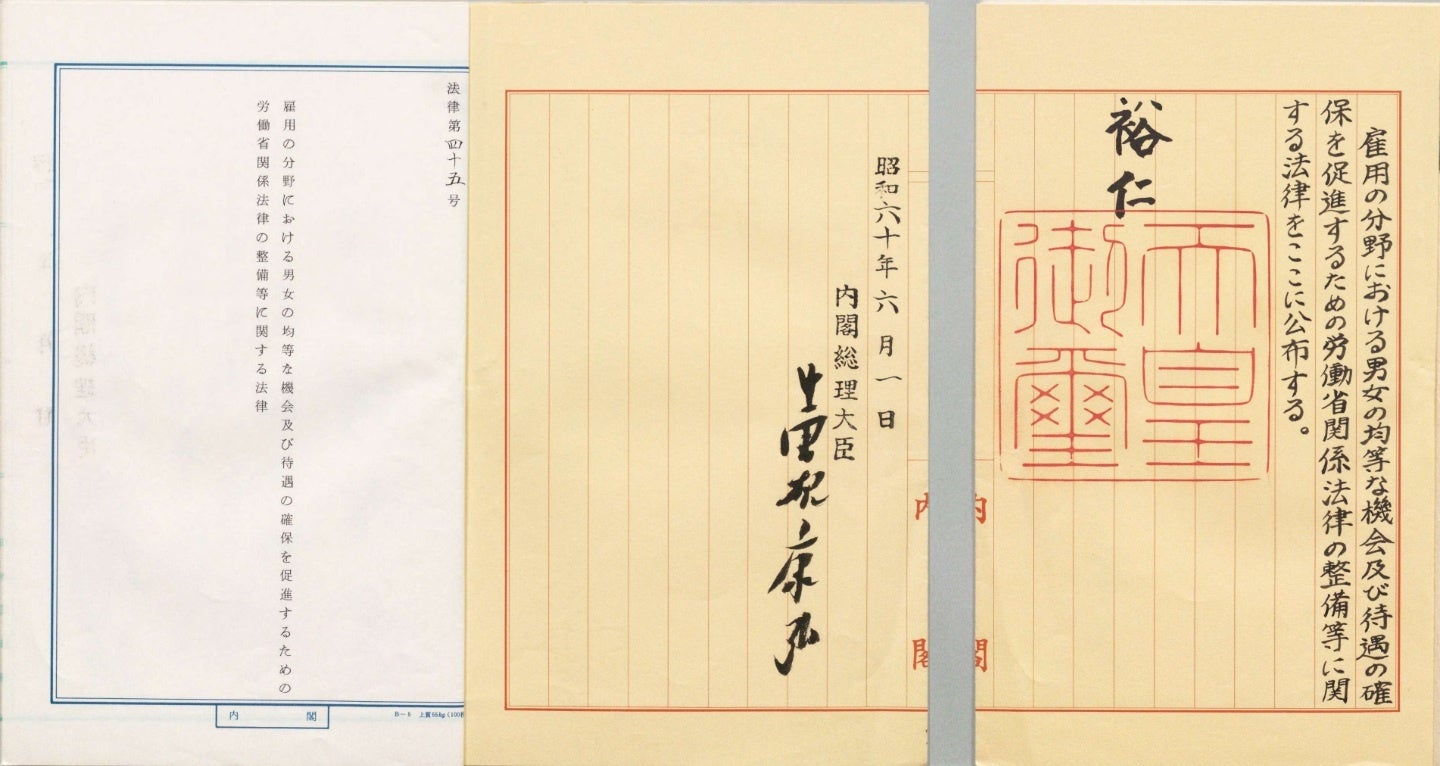 雇用の分野における男女の均等な機会及び待遇の確
保を促進するための労働省関係法律の整備等に関
する法律をここに公布する。
裕仁
天皇
御璽
内閣
昭和六十年六月一日
内閣総理大臣
中曽根康弘
内閣
法律第四十五号
雇用の分野における男女の均等な機会及び待遇の確保を促進するための
労働省関係法律の整備等に関する法律
内閣
B－5 上質55kg(100